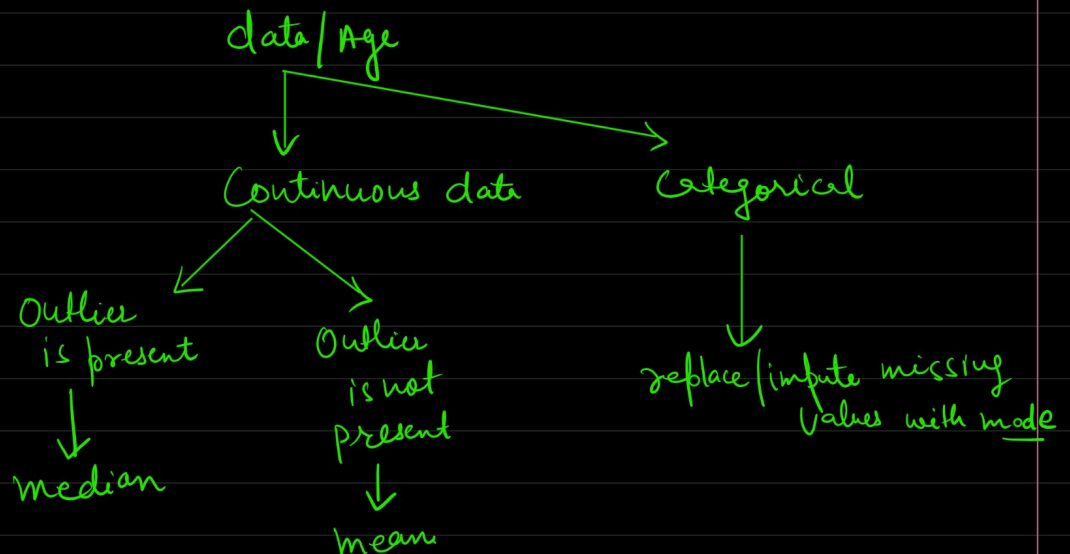 data/Age
Continuous data
Categorical
Outlier
is present
median
Outlier
is not
present
mean
replace/impute missing
values with mode